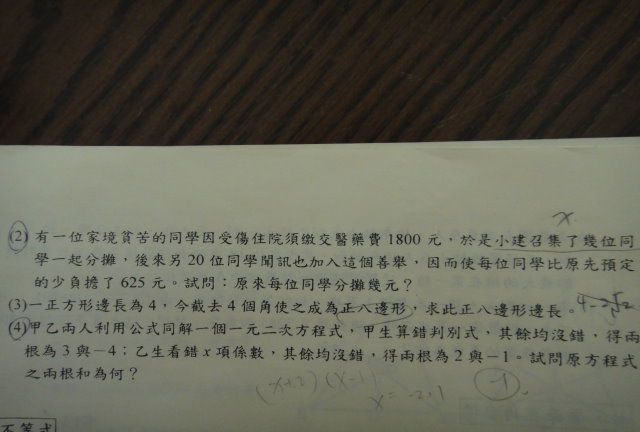 x
(2) 有一位家境貧苦的同學因受傷住院須繳交醫藥費 1800 元，於是小建召集了幾位同
學一起分攤，後來另 20 位同學聞訊也加入這個善舉，因而使每位同學比原先預定
的少負擔了 625 元。試問：原來每位同學分攤幾元？
(3)一正方形邊長為 4，今截去 4 個角使之成為正八邊形，求此正八邊形邊長。
(4)甲乙兩人利用公式同解一個一元二次方程式，甲生算錯判別式，其餘均沒錯，得兩
根為 3 與－4；乙生看錯 x 項係數，其餘均沒錯，得兩根為 2 與－1。試問原方程式
之兩根和為何？
-1
不等式